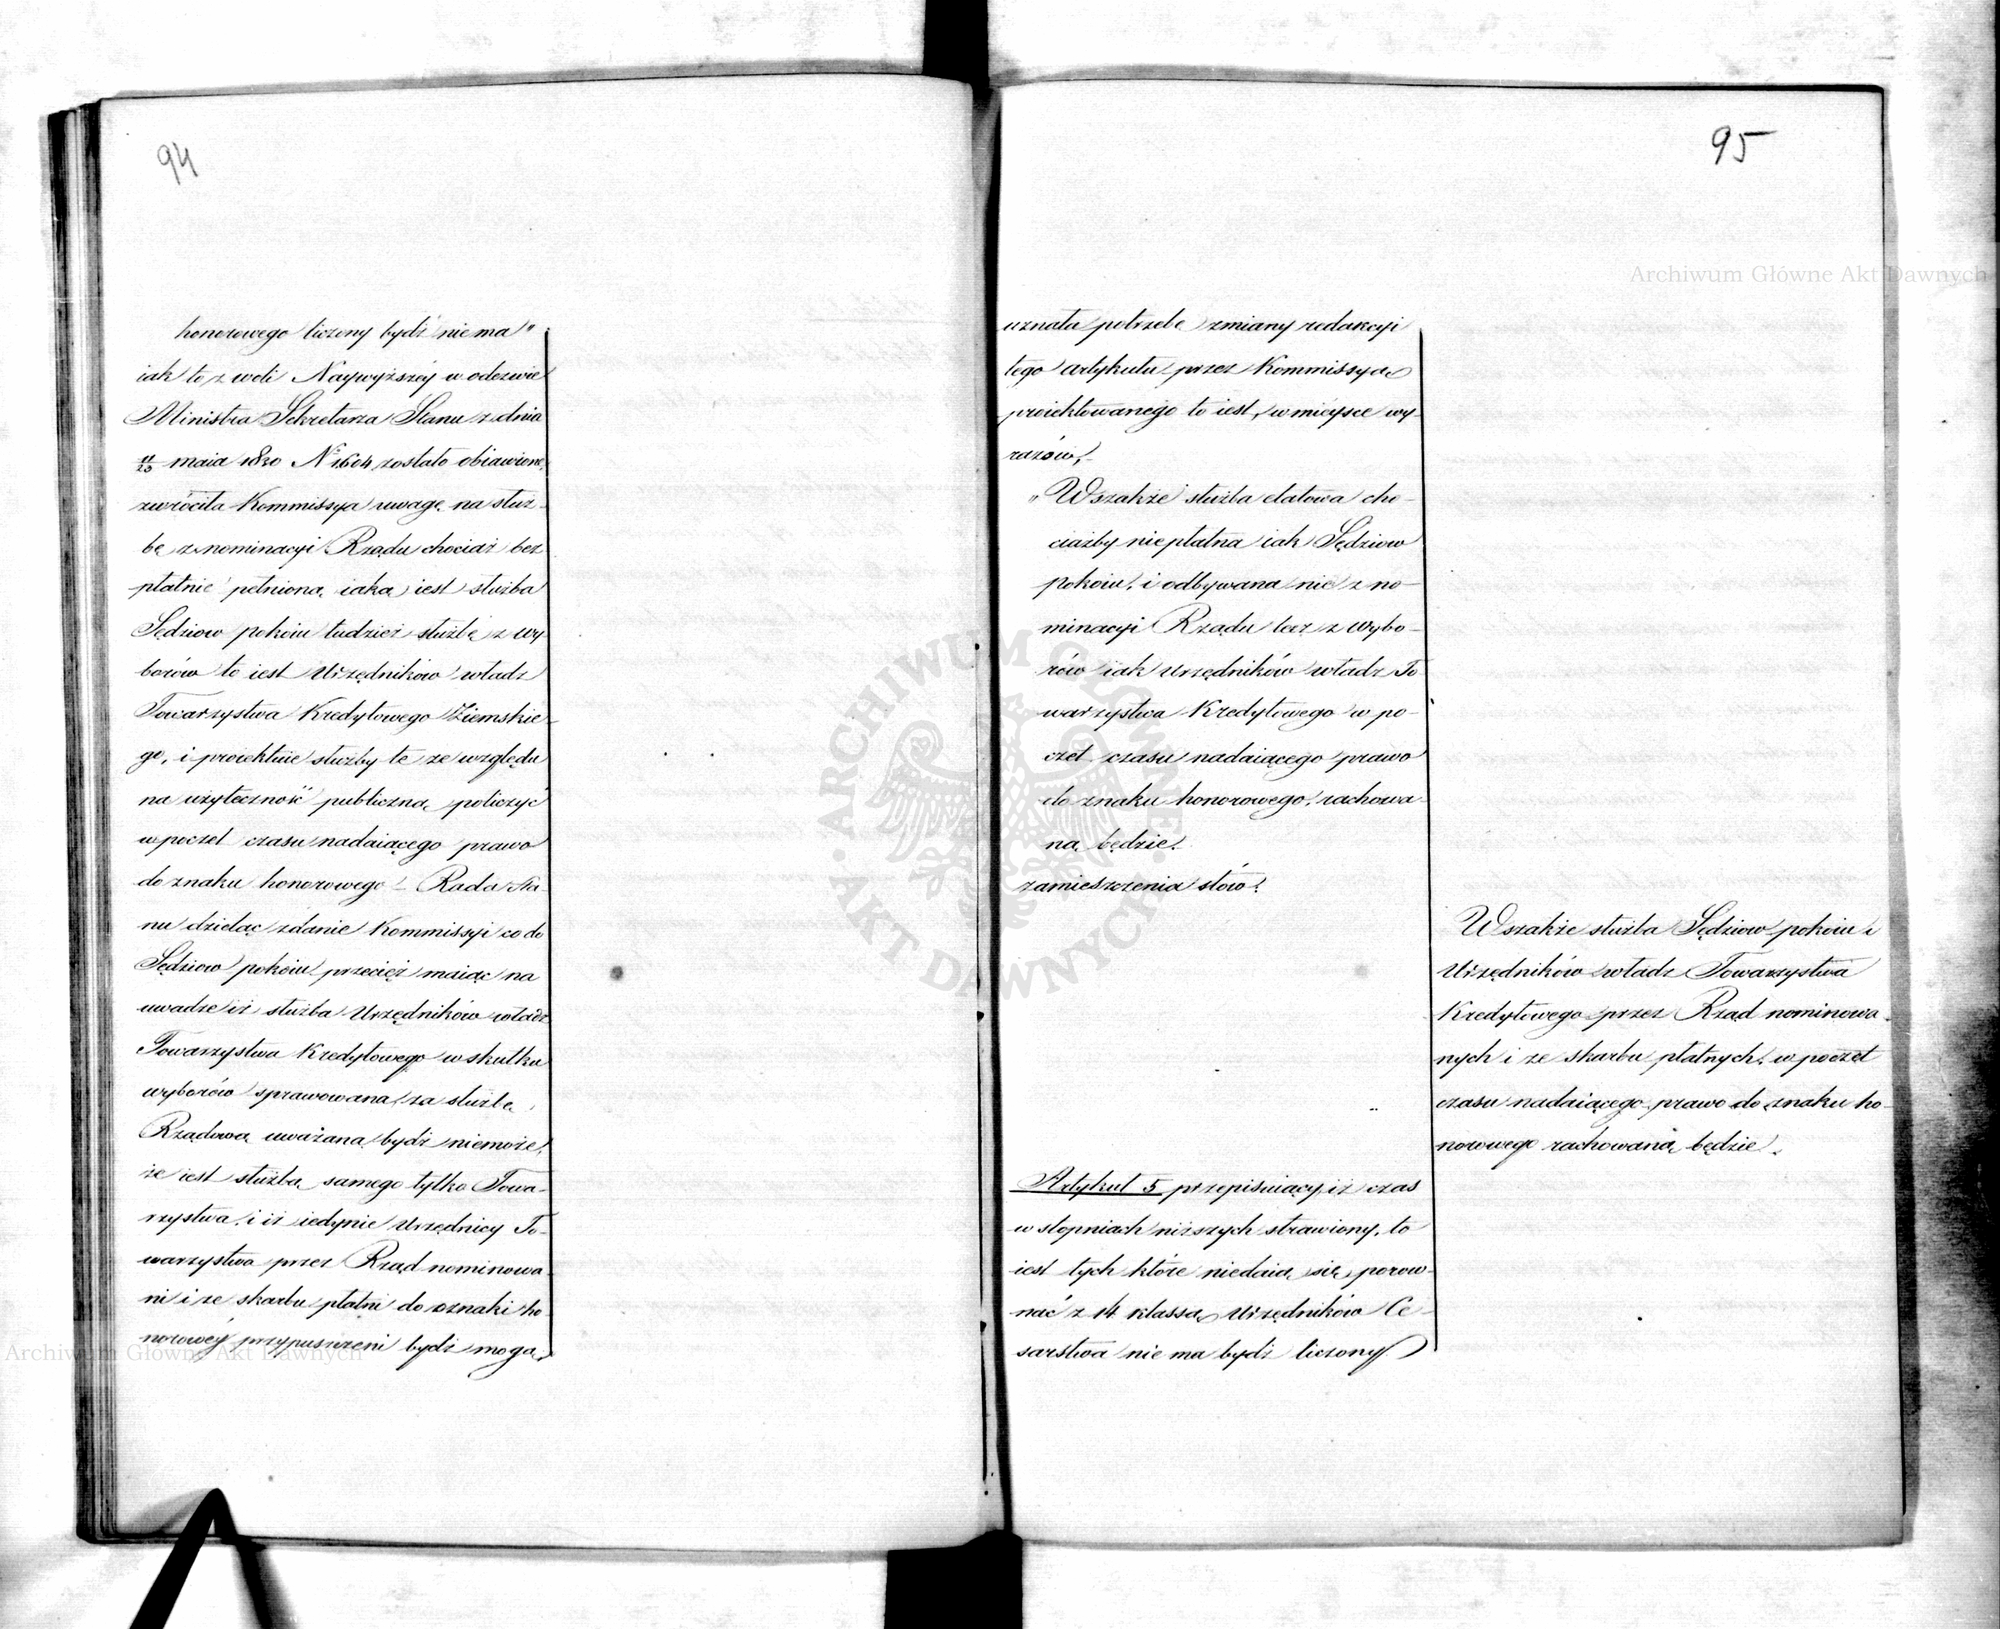 94
honorowego liczony bydź nie ma"
iak to z woli Naywyższéy w odezwie
Ministra Sekretarza Stanu z dnia
11/23 maia 1830 Nr 1604 zostało obiawione,
zwróciła Kommissya uwagę na służ-
bę z nominacyi Rządu chociaż bez
płatnie pełnioną iaką iest służba
Sędziow pokoiu tudzież służbę z wy-
borów to iest Urzędników władz
Towarzystwa Kredytowego Ziemskie-
go, i proiektuie służby te ze względu
na użyteczność publiczną policzyć
w poczet czasu nadaiącego prawo
do znaku honorowego – Rada Sta-
nu dzieląc zdanie Kommissyi co do
Sędziow pokoiu przecięż maiąc na
uwadze iż służba Urzędników władz
Towarzystwa Kredytowego w skutku
wyborów sprawowana, za służbę
Rządową uważaną bydź niemoże,
że iest służbą samego tylko Towa-
rzystwa, i iż iedynie Urzędnicy To-
warzystwa przez Rząd nominowa-
ni i ze skarbu płatni do oznaki ho-
norowéy przypuszczeni bydź mogą,
95
uznała potrzebę zmiany redakcyi
tego artykułu przez Kommissyą
proiektowanego to iest, w mieysce wy-
razów,
"Wszakże służba etatowa cho-
ciażby niepłatna iak Sędziow
pokoiu, i odbywana nie z no-
minacyi Rządu lecz z wybo-
rów iak Urzędników władz To
warzystwa Kredytowego w po-
czet czasu nadaiącego prawo
do znaku honorowego, rachowa-
ną będzie.
zamieszczenia słów:
Wszakże służba Sędziow pokoiu i
Urzędników władz Towarzystwa
Kredytowego przez Rząd nominowa-
nych i ze skarbu płatnych, w poczet
czasu nadaiącego prawo do znaku ho-
norowego rachowaną będzie.
Artykuł 5 przepisuiący iż czas
w stopniach niższych strawiony, to
iest tych które niedaią się porow-
nać z 14 klassą Urzędników Ce-
sarstwa nie ma bydź liczony
Archiwum Główne Akt Dawnych
Archiwum Główne Akt Dawnych
ARCHIWUM GŁÓWNE · AKT DAWNYCH ·